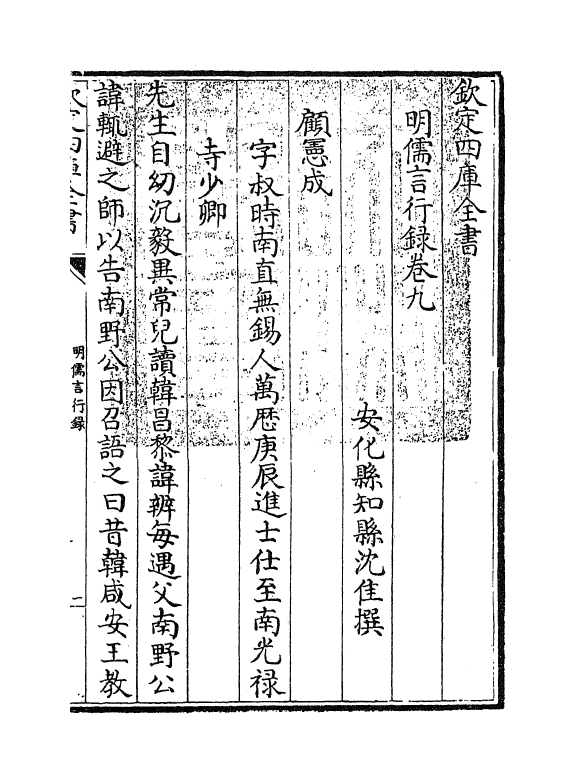 欽定四庫全書
明儒言行録卷九
安化縣知縣沈佳撰
顧憲成
字叔時南直無錫人萬厯庚辰進士仕至南光禄
寺少卿
先生自幼沉毅異常兒讀韓昌黎諱辨每遇父南野公
諱輒避之師以告南野公因召語之曰昔韓咸安王教
欽定四庫全書
明儒言行録
二